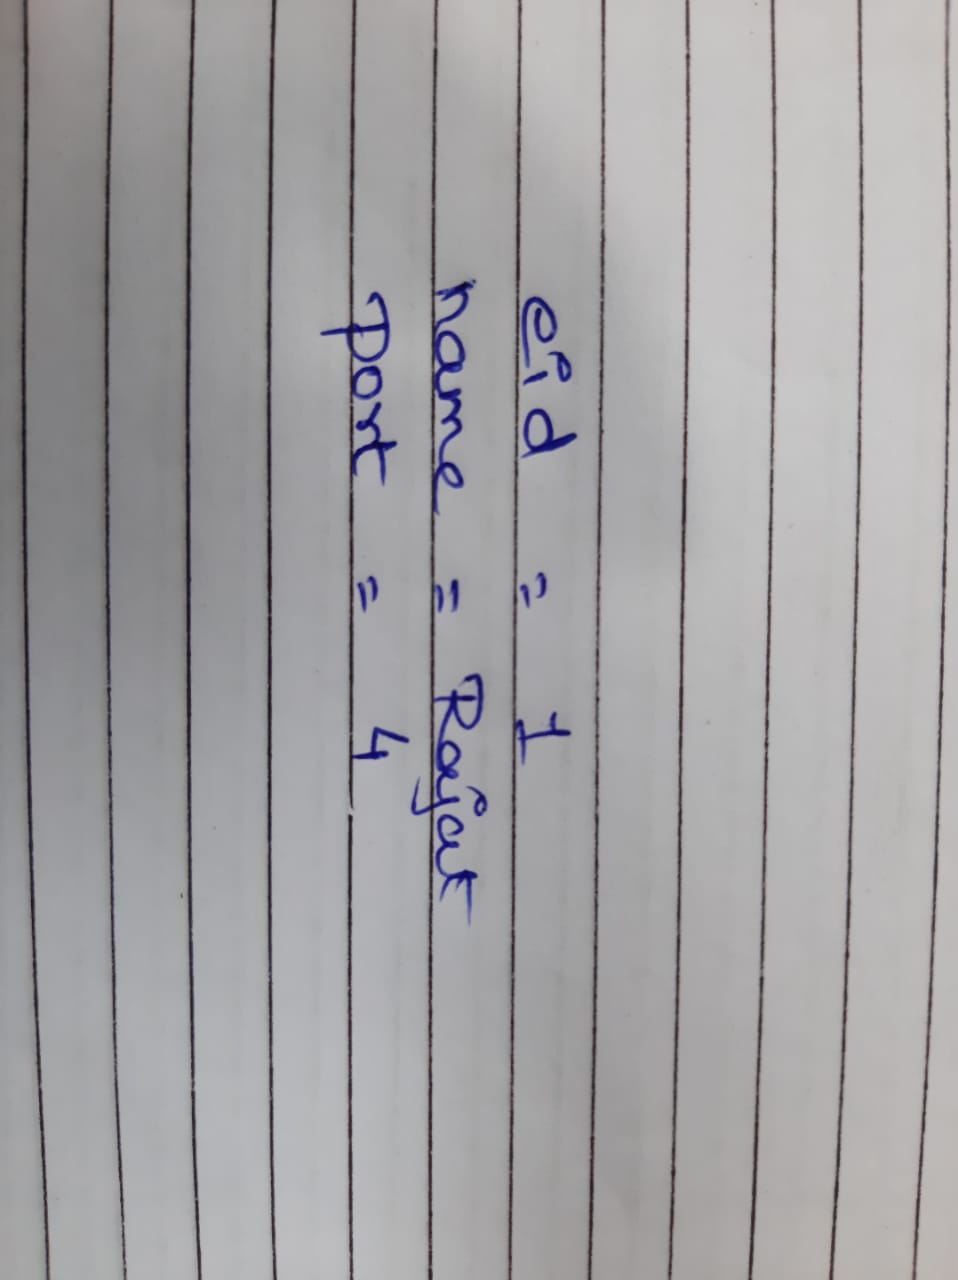 eid = 1
name = Rajat
port = 4